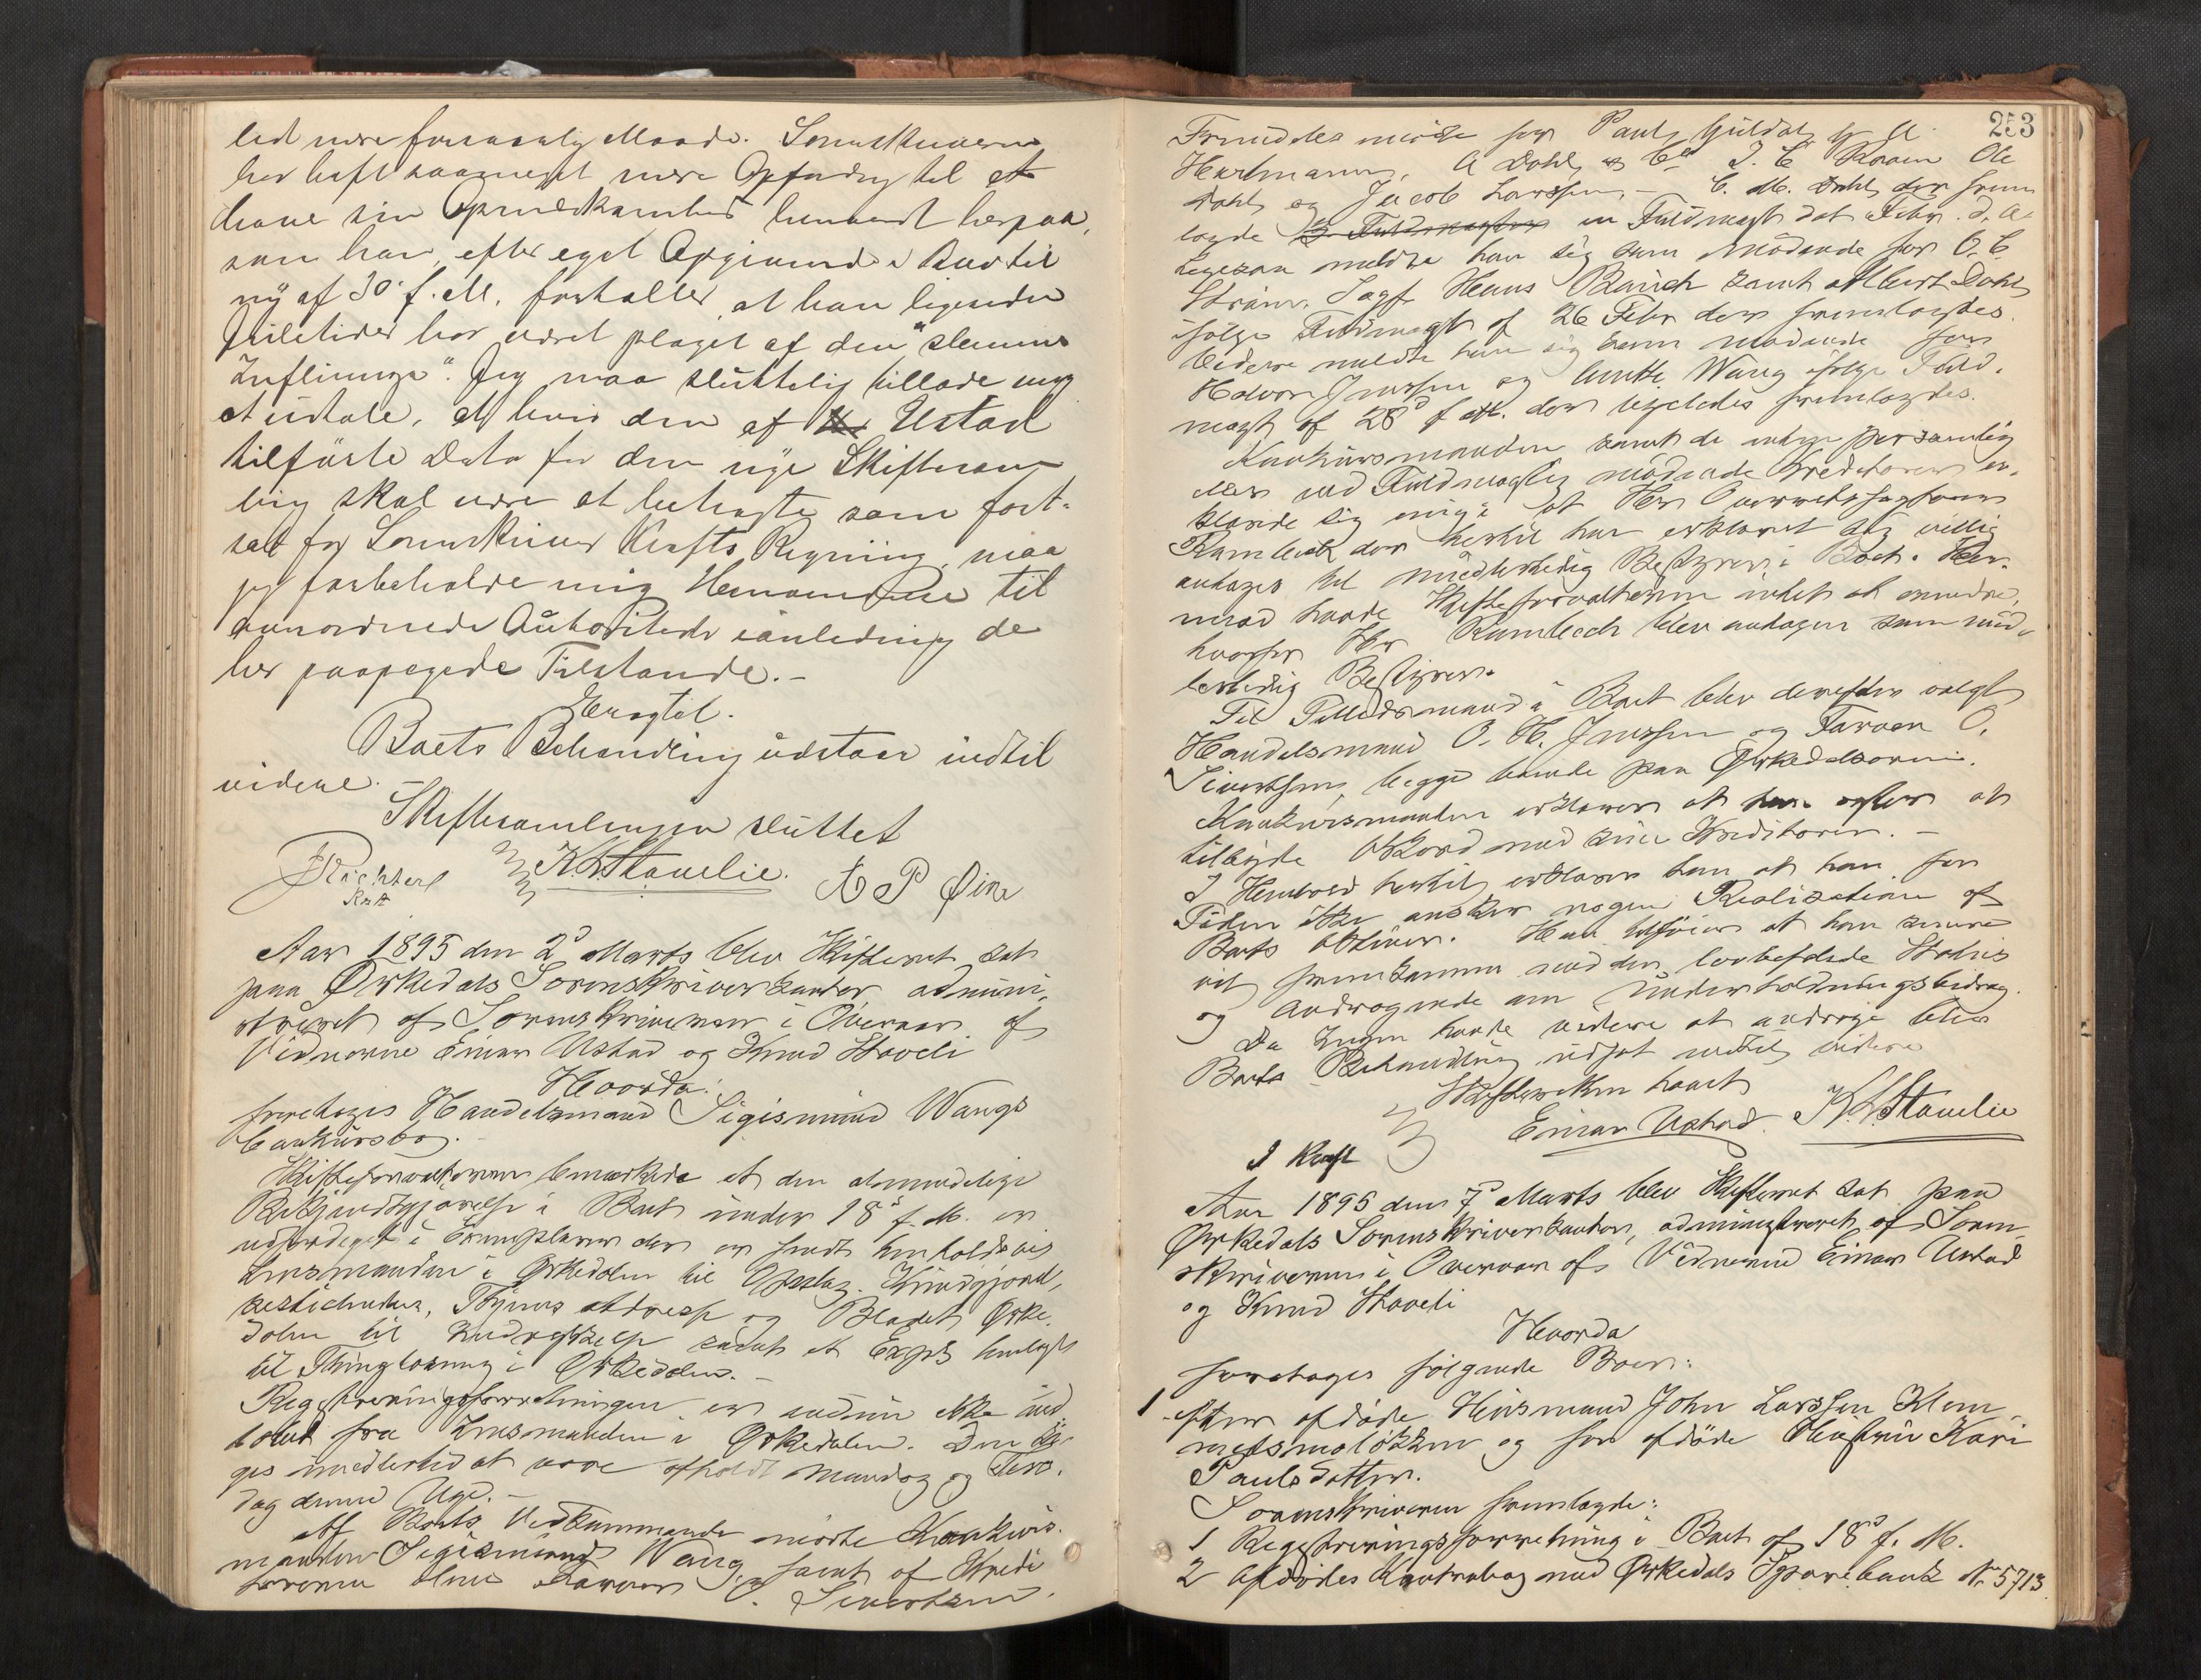 lid mere forsvarlig Maade. Sorenskriveren
har havt saameget mere Opfordring til at
have sin Opmerksomhed henvendt herpaa,
som han, efter eget Opgivende i
af 30 f. M. fortaller, at han ligesiden
Juletider har været plaget af den "slemme
Jeg maa sluttelig tillade mig
at udtale, at hvis den af Ustad
tilførte Data for den nye Skiftesam
ling skal være at betragte som fort-
sat for Sorenskriver Krafts Regning, maa
jeg forbeholde mig Henvendelse til
overordnede Autoriteter i anledning de
her paapegede Tilstande.-
Boets Behandling udstaar indtil
videre.
Skiftesamlingen sluttet
J Richter K Staveli. A P Øien
Aar 1895 den 2d Marts blev Skifteret sat
paa Ørkedals Sorenskriverkontor, admini-
streret af Sorenskriveren i Overvær af
Vidnerne Einar Ustad og Knud Staveli
Hvorda:
foretoges Handelsmand Sigismund Wangs
Conkursbo.
Skifteforvalteren bemærkede at den almindelige
Bekjendtgjørelse i Boet under 18d f. M. er
udfærdiget i Exemplarer der er sendt henholdsvis
Lensmanden i Ørkedalen til Opslag,
Thjems Adresse og Bladet Ørke-
dølen til Indrykkelse sidst et Expl henlagt
til Thinglæsning i Ørkedalen.-
Registreringsforretningen er endnu ikke ind
kommet fra Lensmanden i Ørkedalen. Den
ges imidlertid at være afholdt Mandag og Tirs-
dag denne Uge.-
Af Boets Vedkommende mødte Konkurs-
manden Sigismund Wang, samt af Kredi
torerne Farver O. Sivertsen.
253
Fremdeles mødte for Paul Guldal,
Hartmann, A Dahl & Co J. C Ole
Dahl og Jacob Larssen,- C. M. Dahl der frem
lagde en Fuldmagt dat Febr. d. A.
Ligesaa meldte han sig som mødende for O. C
Hans samt Albert Dahl
ifølge Fuldmagt af 26 Febr der fremlagdes.
Videre meldte han sig som mødende for
Halvor Janssen og Wang ifølge Fuld-
magt af 28d f M. der ligeledes fremlagdes.
Konkursmanden samt de enten personlig
eller ved Fuldmægtig mødende Kreditorer er-
klærede sig enige i at Hr Overretssagfører
Rambech der hertil har erklæret sig villig
antages til midlertidig Bestyrer i Boet. Her-
imod havde Skifteforvalteren intet at erindre,
hvorfor Hr Rambech blev antagen som mid-
lertidig Bestyrer.
Til Tillidsmænd i Boet blev derefter valgt
Handelsmand O. H. Janssen og Farver O.
Sivertsen, begge boende paa Ørkedalsøren.
Konkursmanden erklærer at han agter at
tilbyde Akkord med sine Kreditorer.-
I Henhold hertil erklærer han at han for
Tiden ikke ønsker nogen Realisation af
Boets Aktiver. Han tilføier at han senere
vil fremkomme med den lovbefalede Status
og Andragende om Underholdningsbidrag.
Da Ingen havde videre at andrage blev
Boets Behandling udsat indtil videre
Skifteretten hævet
Einar Ustad. K. Staveli
J Kraft
Aar 1895 den 7d Marts blev Skifteret sat paa
Ørkedals Sorenskriverkontor, administreret af Soren-
skriveren i Overvær af Vidnerne Einar Ustad
og Knud Staveli
Hvorda
foretoges følgende Boer:
1 efter afdøde Husmand John Larssen Klem
metsmoløkken og før afdøde Hustru Kari
Paulsdatter.
Sorenskriveren fremlagde:
1 Registreringsforretning i Boet af 18d f. M.
2 Afdødes Kontrabog med Ørkedals Sparebank No 5713.